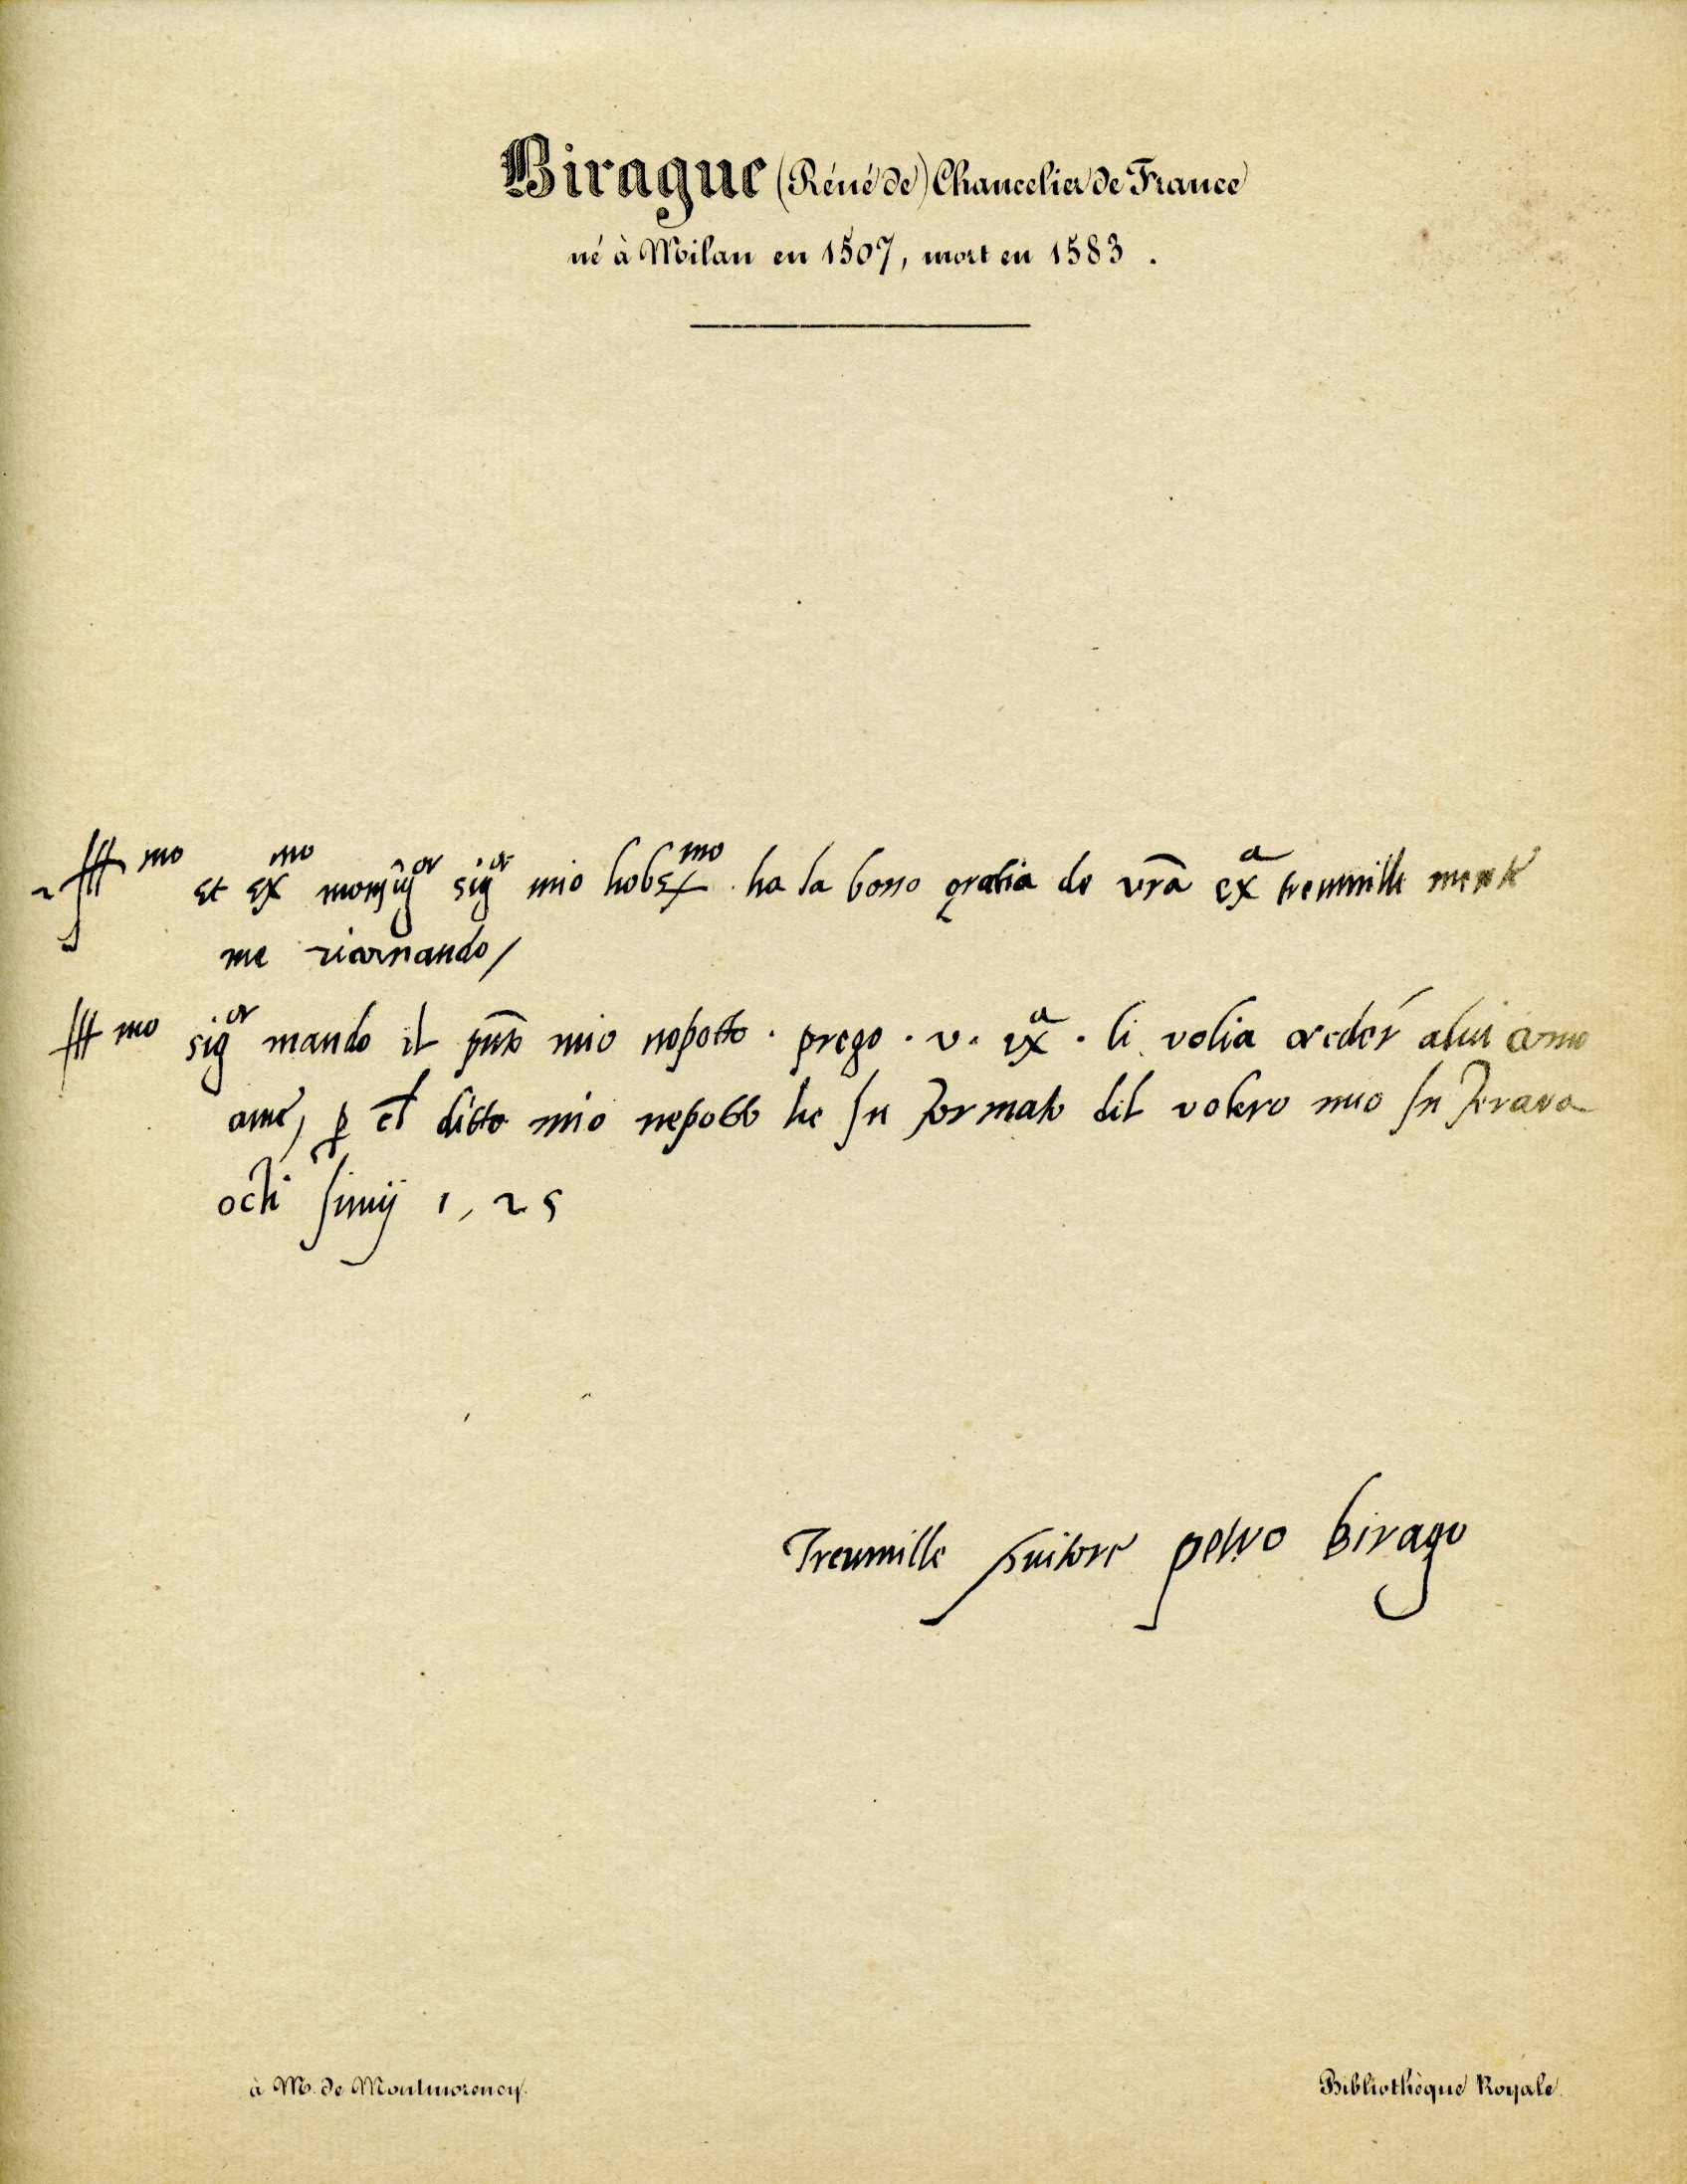 Birague (Réné de) Chancelier de France
né à Milan en 1507, mort en 1583.
Ill mo et ex mo monsig or sig or mio hobs mo ha la bono gratia de vrã ex a hreumille mente
me ricomando /
Ill mo sig or mando il pnto mio nepotto . prego . v . ex a . li volia creder alui como
ame, p el ditto mio nepotto he In formato dil volero mio In ferara
alli 1, 25
hreumille servitore petro birago
à M. de Montmorency.
Bibliothèque Royale.